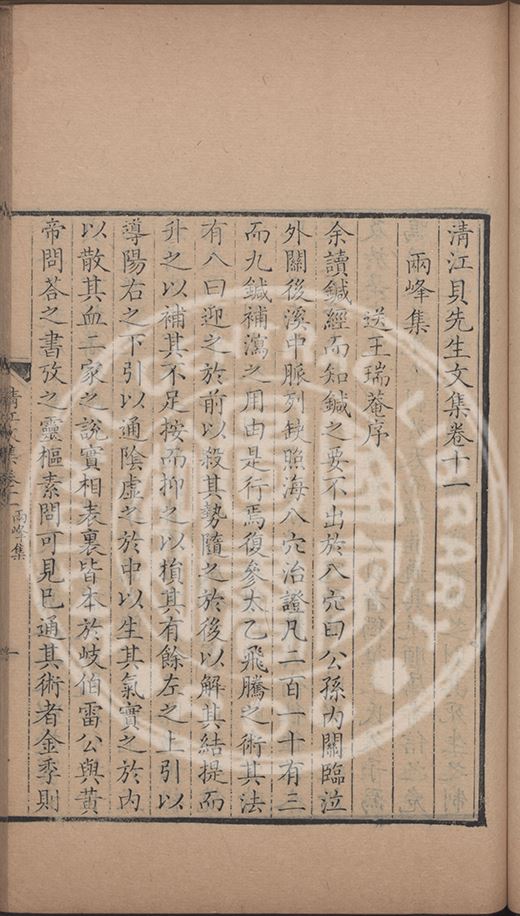 清江貝先生文集卷十一
兩峰集
送王瑞菴序
余讀鍼經而知鍼之要不出於八穴曰公孫內關臨泣
外關後溪申脈列缺照海八穴治證凡二百一十有三
而九鍼補瀉之用由是行焉復參太乙飛騰之術其法
有八曰迎之於前以殺其勢隨之於後以解其結提而
升之以補其不足按而抑之以損其有餘左之上引以
導陽右之下引以通陰虛之於中以生其氣實之於內
以散其血二家之說實相表裏皆本於岐伯雷公與黃
帝問荅之書攷之靈樞素問可見已通其術者金季則
清江文集卷十一
兩峰集
一